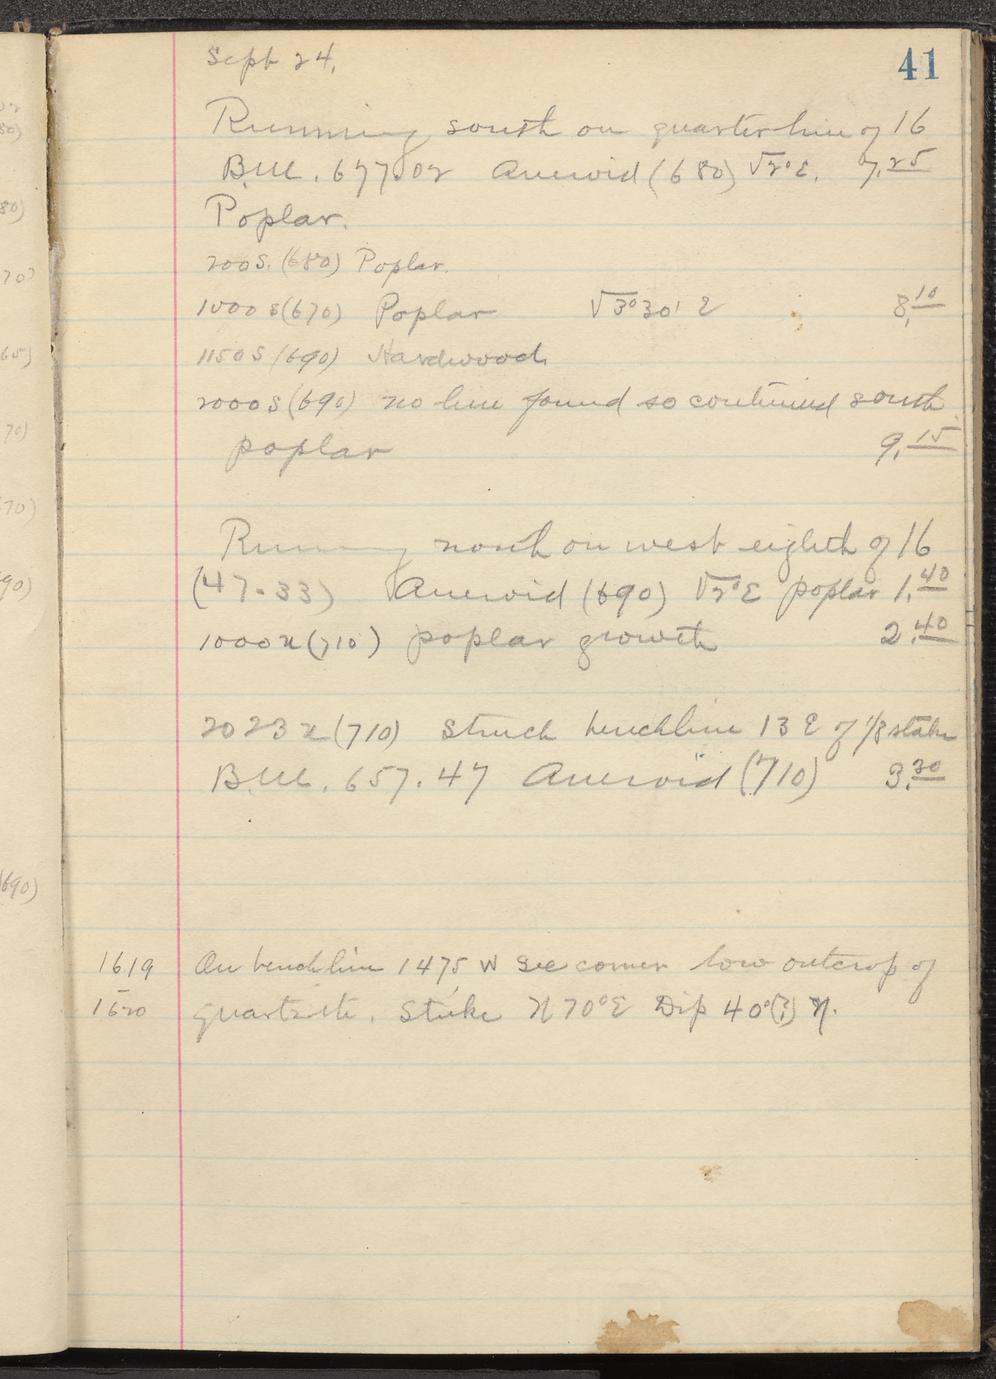 41
Sept 24.
Running south on quarter line of 16
B.M. 677.02 Aneroid (680) V2°E. 7,25
Poplar.
200 S. (680) Poplar.
1000 S (670) Poplar V3°30' E 8,10
1150 S (690) Hardwood
2000 S (690) no line found so continued south
poplar 9,15
Running north on west eighth of 16
(47-33) Aneroid (690) V2°E poplar 1,40
1000 N (710) poplar growth 2,40
2023 N (710) Struck benchline 13 E of 1/8 stake
B.M. 657.47 Aneroid (710) 3,30
1619 On benchline 1475 W Sec corner low outcrop of
1620 quartzite. Strike N 70°E Dip 40°(?) N.
80)
70)
70)
70)
90)
(690)